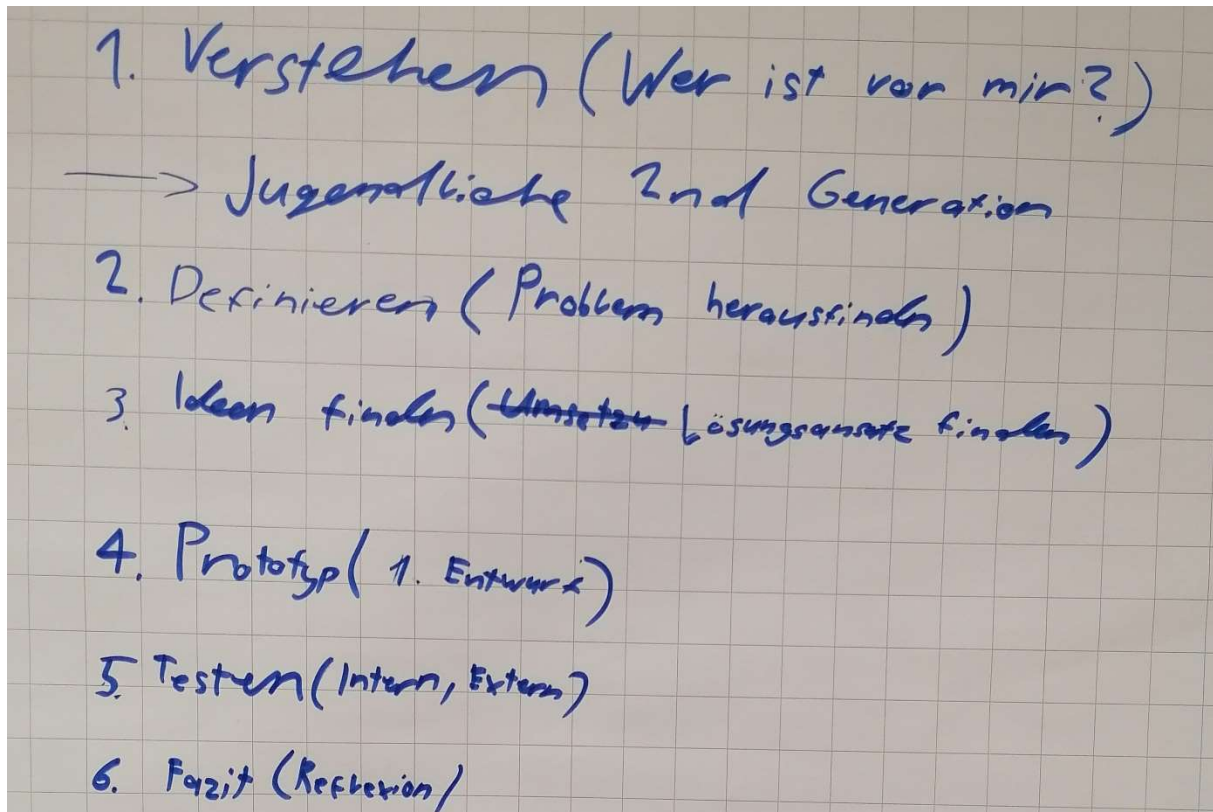 1. Verstehen (Wer ist vor mir?)
→ Jugendliche 2nd Generation
2. Definieren (Problem herausfinden)
3. Ideen finden (Umsetzu Lösungsansatz finden)
4. Prototyp (1. Entwurf)
5. Testen (Intern, Extern)
6. Fazit (Reflexion)